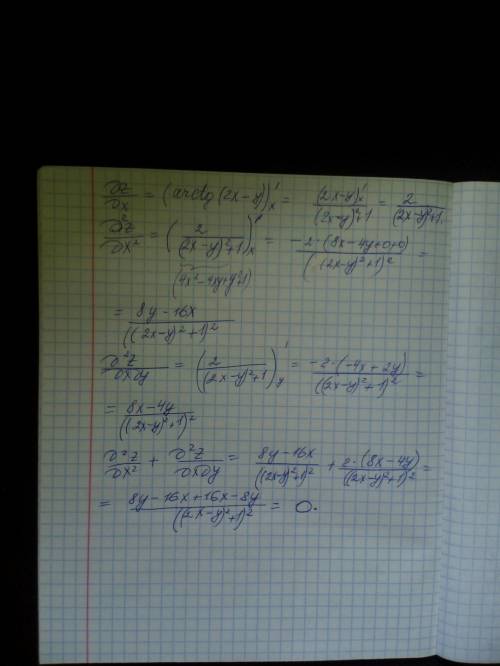 ∂z/∂x = (arctg(2x-y))'ₓ = (2x-y)'ₓ/((2x-y)²+1) = 2/((2x-y)²+1)
∂²z/∂x² = (2/((2x-y)²+1))'ₓ = -2·(8x-4y+0+0)/((2x-y)²+1)² =
(4x²-4xy+y²+1)
= (8y-16x)/((2x-y)²+1)²
∂²z/∂x∂y = (2/((2x-y)²+1))'ᵧ = -2·(-4x+2y)/((2x-y)²+1)² =
= (8x-4y)/((2x-y)²+1)²
∂²z/∂x² + ∂²z/∂x∂y = (8y-16x)/((2x-y)²+1)² + 2·(8x-4y)/((2x-y)²+1)² =
= (8y-16x+16x-8y)/((2x-y)²+1)² = 0.